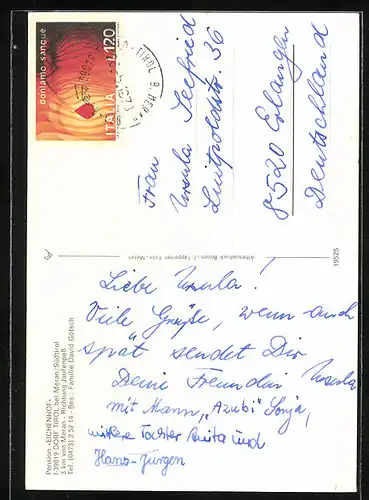 doniamo sangue
ITALIA L.120
TIROL
Frau
Ursula Seefried
Luitpoldstr. 36
8520 Erlangen
Deutschland
Athesiadruck Bozen - J. Tappeiner Foto-Meran
19525
Liebe Ursula!
Viele Grüße, wenn auch
spät sendet Dir
Deine Freundin Ursula
mit Mann, „Azubi" Sonja,
mittlere Tochter Anita und
Hans-Jürgen
Pension »EICHENHOF«
I-39019 DORF TIROL bei Meran/Südtirol
3 km von Meran - Richtung Jaufenpaß
Tel. (0473) 2 52 14 - Bes.: Familie David Götsch